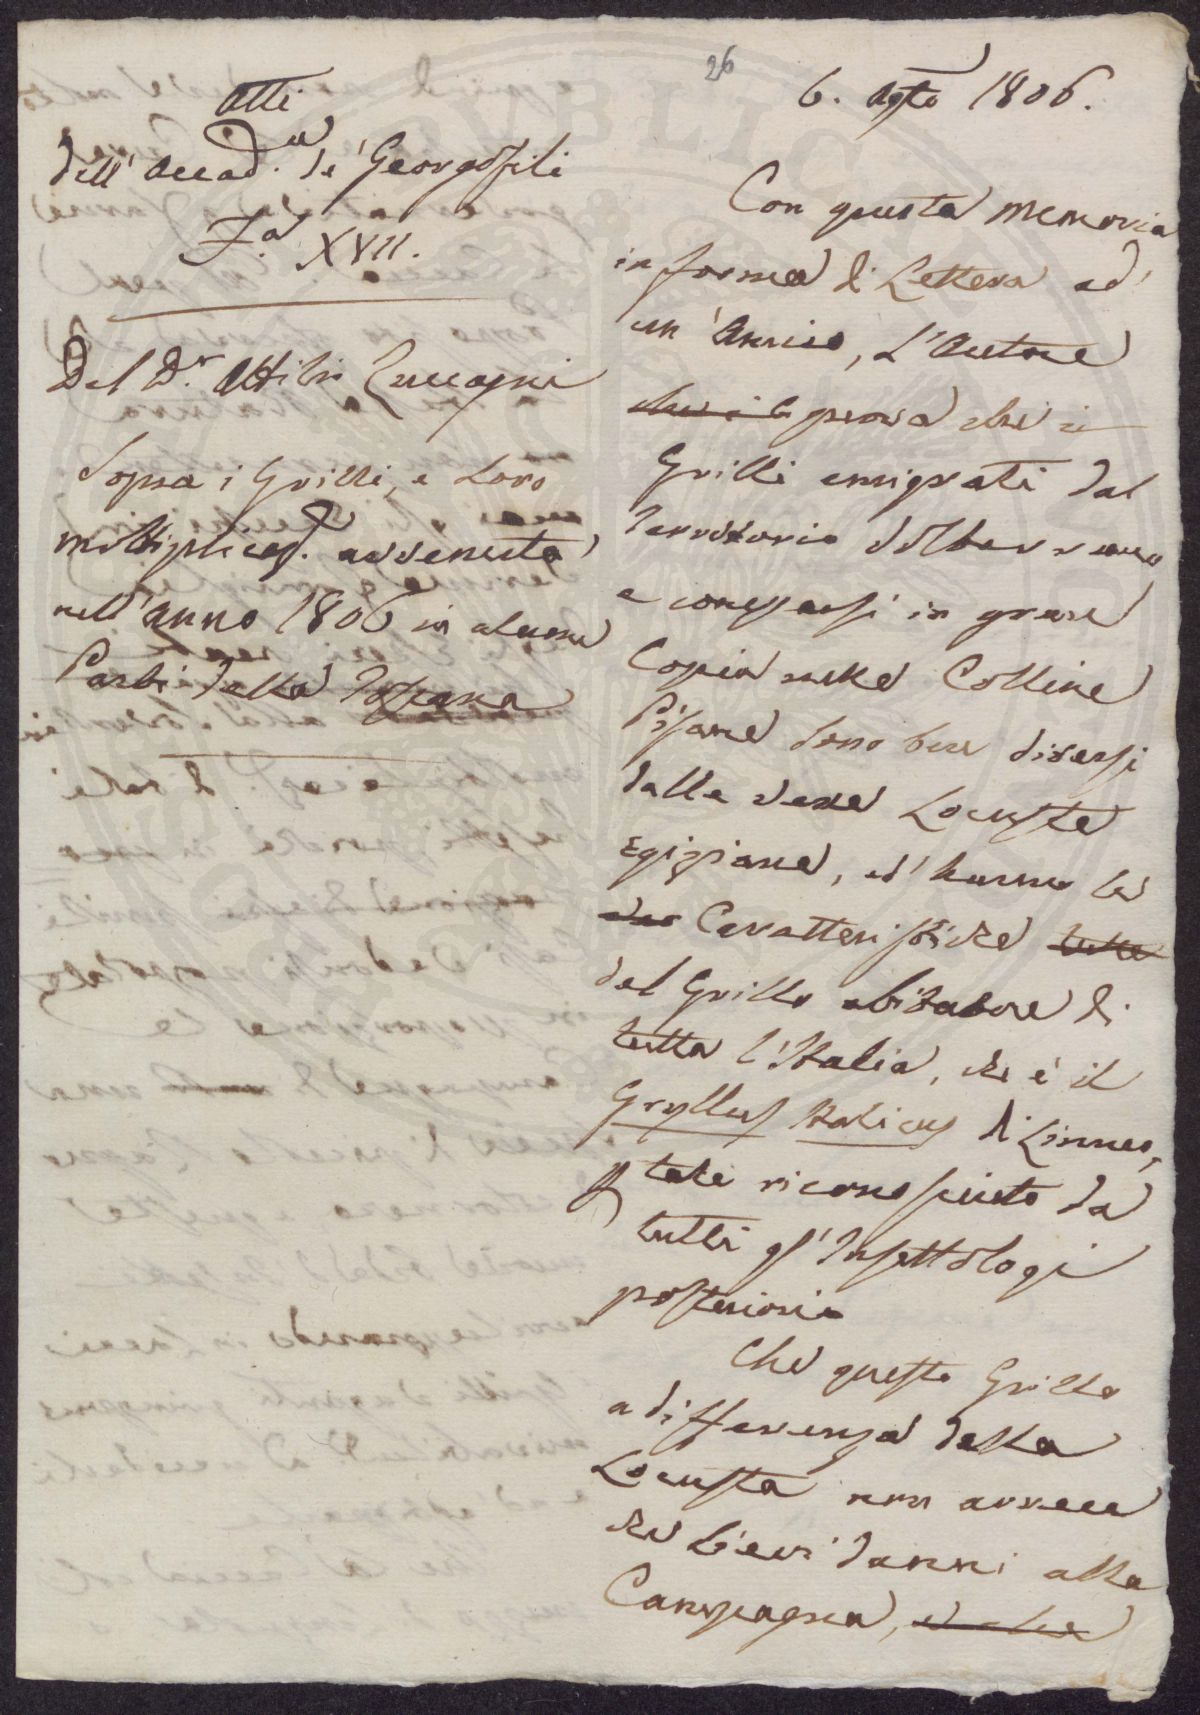 26
Atti
dell' Accad.a de' Georgofili
F.a XVII.
Del D.r Attilio Zuccagni
Sopra i Grilli, e loro
moltiplicaz.e avvenuta
nell' anno 1806 in alcune
Parti della Toscana
6. Agto 1806.
Con questa memoria
in forma di Lettera ad'
un' Amico, L'Autore
prova che i
Grilli emigrati dal
Territorio Volterrano
e comparsi in gran
Copia nelle Colline
Pisane sono ben diversi
dalle vere Locuste
Egiziane, ed' hanno le
Caratteristiche tutte
del Grillo abitatore di
tutta l'Italia, che è il
Gryllus Italicus di Linneo,
tale riconosciuto da
tutti gl' Insettologi
posteriori
Che questo Grillo
a differenza della
Locusta non arreca
che lievi danni alla
Campagna, ed che